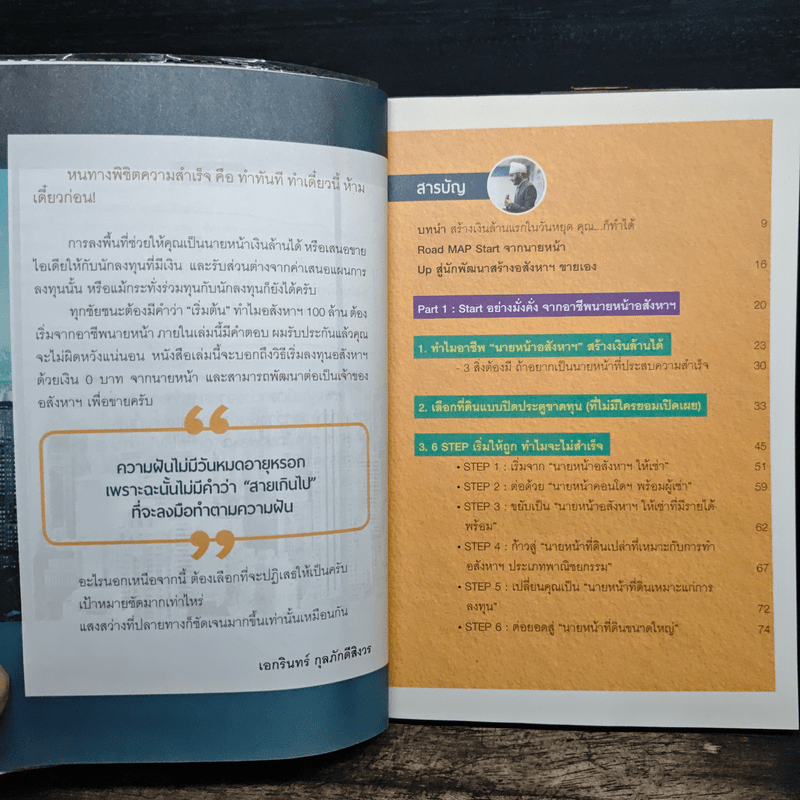 หนทางพิชิตความสำเร็จ คือ ทำทันที ทำเดี๋ยวนี้ ห้าม
เดี๋ยวก่อน!
การลงพื้นที่ช่วยให้คุณเป็นนายหน้าเงินล้านได้ หรือเสนอขาย
ไอเดียให้กับนักลงทุนที่มีเงิน และรับส่วนต่างจากค่าเสนอแผนการ
ลงทุนนั้น หรือแม้กระทั่งร่วมทุนกับนักลงทุนก็ยังได้ครับ
ทุกชัยชนะต้องมีคำว่า “เริ่มต้น” ทำไมอสังหาฯ 100 ล้าน ต้อง
เริ่มจากอาชีพนายหน้า ภายในเล่มนี้มีคำตอบ ผมรับประกันแล้วคุณ
จะไม่ผิดหวังแน่นอน หนังสือเล่มนี้จะบอกถึงวิธีเริ่มลงทุนอสังหาฯ
ด้วยเงิน 0 บาท จากนายหน้า และสามารถพัฒนาต่อเป็นเจ้าของ
อสังหาฯ เพื่อขายครับ
“
ความฝันไม่มีวันหมดอายุหรอก
เพราะฉะนั้นไม่มีคำว่า “สายเกินไป”
ที่จะลงมือทำตามความฝัน
”
อะไรนอกเหนือจากนี้ ต้องเลือกที่จะปฏิเสธให้เป็นครับ
เป้าหมายชัดมากเท่าไหร่
แสงสว่างที่ปลายทางก็ชัดเจนมากขึ้นเท่านั้นเหมือนกัน
เอกรินทร์ กุลภักดีสิงวร
สารบัญ
บทนำ สร้างเงินล้านแรกในวันหยุด คุณ...ก็ทำได้ 9
Road MAP Start จากนายหน้า
Up สู่นักพัฒนาสร้างอสังหาฯ ขายเอง 16
Part 1 : Start อย่างมั่งคั่ง จากอาชีพนายหน้าอสังหาฯ 20
1. ทำไมอาชีพ “นายหน้าอสังหาฯ” สร้างเงินล้านได้ 23
- 3 สิ่งต้องมี ถ้าอยากเป็นนายหน้าที่ประสบความสำเร็จ 30
2. เลือกที่ดินแบบปิดประตูขาดทุน (ที่ไม่มีใครยอมเปิดเผย) 33
3. 6 STEP เริ่มให้ถูก ทำไมจะไม่สำเร็จ 45
• STEP 1 : เริ่มจาก “นายหน้าอสังหาฯ ให้เช่า” 51
• STEP 2 : ต่อด้วย “นายหน้าคอนโดฯ พร้อมผู้เช่า” 59
• STEP 3 : ขยับเป็น “นายหน้าอสังหาฯ ให้เช่าที่มีรายได้
พร้อม” 62
• STEP 4 : ก้าวสู่ “นายหน้าที่ดินเปล่าที่เหมาะกับการทำ
อสังหาฯ ประเภทพาณิชยกรรม” 67
• STEP 5 : เปลี่ยนคุณเป็น “นายหน้าที่ดินเหมาะแก่การ
ลงทุน” 72
• STEP 6 : ต่อยอดสู่ “นายหน้าที่ดินขนาดใหญ่” 74